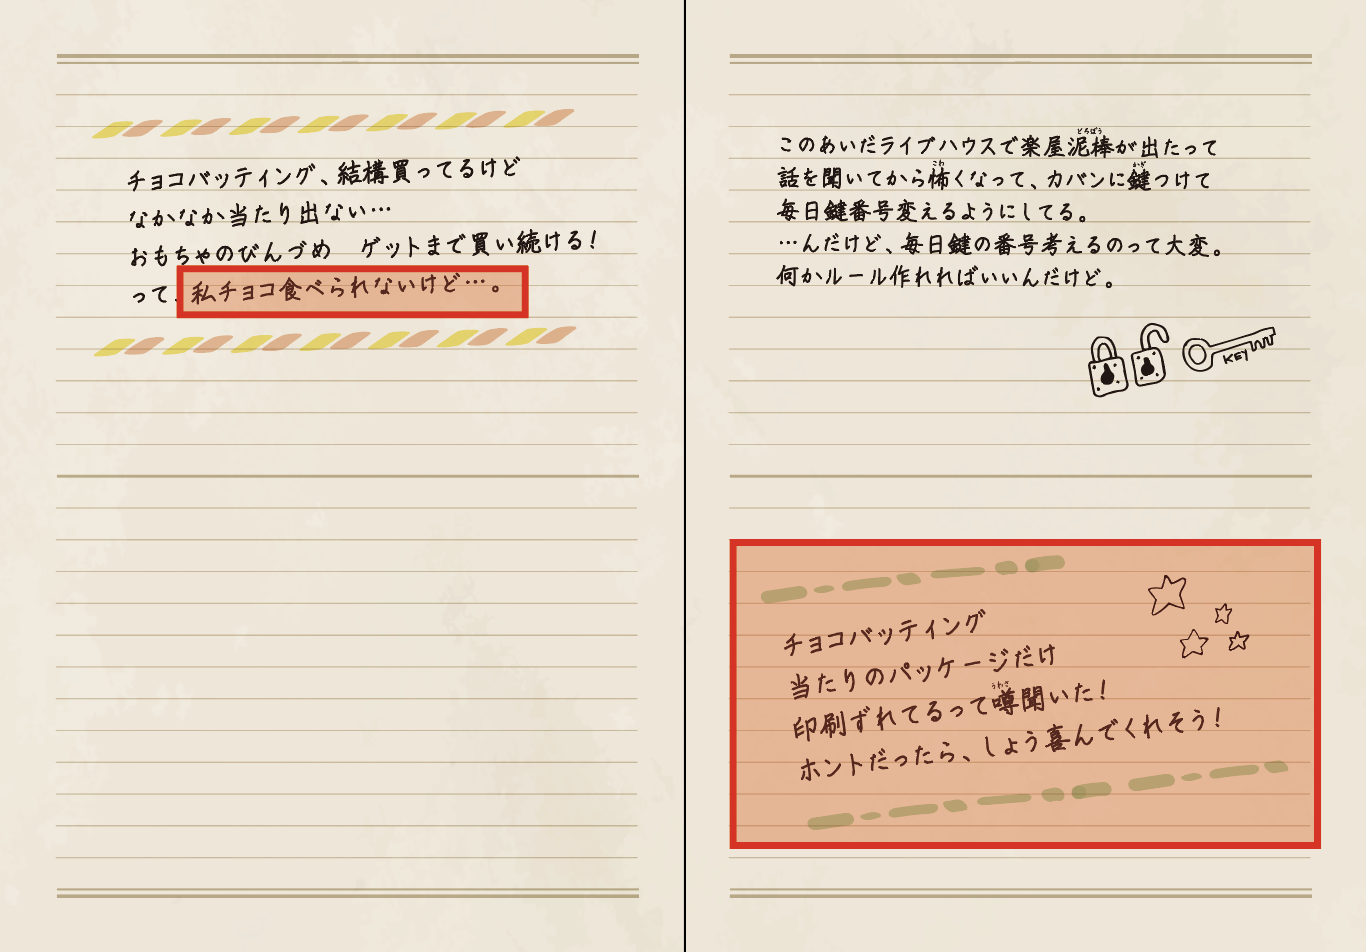 チョコバッティング、結構買ってるけど
なかなか当たり出ない…
おもちゃのびんづめ　ゲットまで買い続ける！
って、私チョコ食べられないけど…。
このあいだライブハウスで楽屋泥棒が出たって
どろぼう
話を聞いてから怖くなって、カバンに鍵つけて
こわ
かぎ
毎日鍵番号変えるようにしてる。
…んだけど、毎日鍵の番号考えるのって大変。
何かルール作れればいいんだけど。
KEY
チョコバッティング
当たりのパッケージだけ
印刷ずれてるって噂聞いた！
うわさ
ホントだったら、しょう喜んでくれそう！